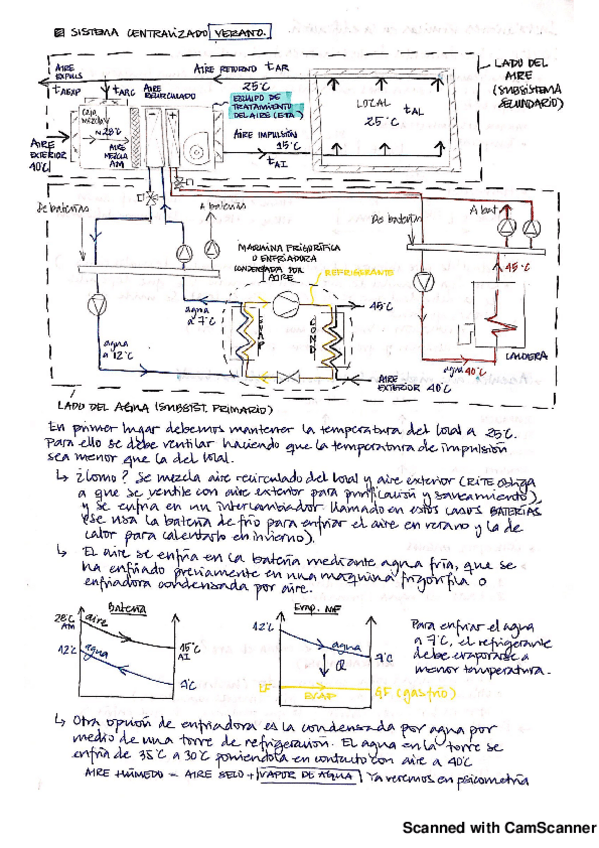 SISTEMA CENTRALIZADO VERANO.
AIRE EXPULS
tAEXP
tARC
AIRE RECIRCULADO
AIRE RETORNO tAR
25°C
LADO DEL AIRE (SUBSISTEMA SECUNDARIO)
EQUIPO DE TRATAMIENTO DEL AIRE (ETA)
LOCAL tAL
25°C
CAJA MEZCLA
~28°C
AIRE MEZCLA AM
AIRE EXTERIOR 40°C
AIRE IMPULSIÓN
15°C
tAI
De baterías
A baterías
De baterías
A bat
MAQUINA FRIGORÍFICA O ENFRIADORA CONDENSADA POR AIRE
REFRIGERANTE
agua a 7°C
agua a 12°C
EVAP
COND
45°C
AIRE EXTERIOR 40°C
45°C
agua 40°C
CALDERA
LADO DEL AGUA (SUBSIST. PRIMARIO)
En primer lugar debemos mantener la temperatura del local a 25°C.
Para ello se debe ventilar haciendo que la temperatura de impulsión
sea menor que la del local.
↳ ¿Como? Se mezcla aire recirculado del local y aire exterior (RITE obliga
a que se ventile con aire exterior para purificación y saneamiento),
y se enfria en un intercambiador llamado en estos casos BATERÍAS
(se usa la batería de frío para enfriar el aire en verano y la de
calor para calentarlo en invierno).
↳ El aire se enfría en la batería mediante agua fría, que se
ha enfriado previamente en una maquina frigorífia o
enfriadora condensada por aire.
Batería
28°C AM
aire
12°C
agua
15°C AI
7°C
Evap. MF
12°C
agua
Q
7°C
LF
EVAP
GF (gas frío)
Para enfriar el agua
a 7°C, el refrigerante
debe evaporarse a
menor temperatura.
↳ Otra opción de enfriadora es la condensada por agua por
medio de una torre de refrigeración. El agua en la torre se
enfría de 35°C a 30°C poniendola en contacto con aire a 40°C
AIRE HÚMEDO = AIRE SECO + VAPOR DE AGUA. Ya veremos en psicometría
Scanned with CamScanner